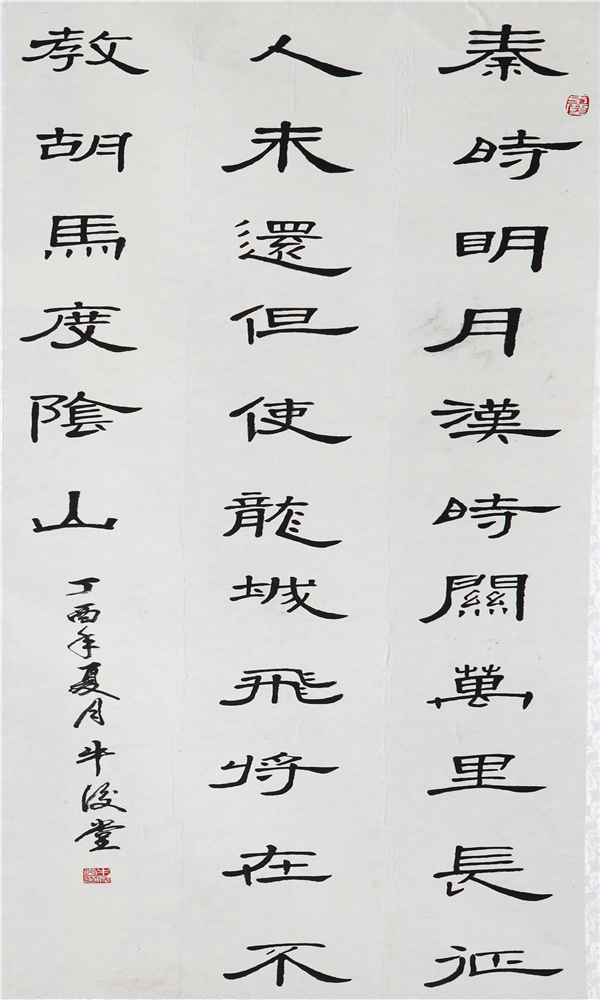 秦時明月漢時關萬里長征
人未還但使龍城飛将在不
教胡馬度陰山
丁酉年夏月牛俊堂